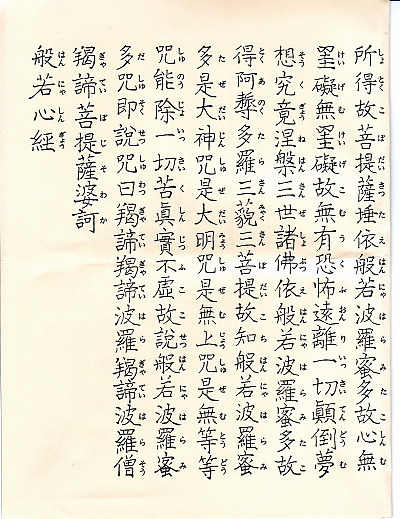 所得故菩提薩埵依般若波羅蜜多故心無
罣礙無罣礙故無有恐怖遠離一切顚倒夢
想究竟涅槃三世諸佛依般若波羅蜜多故
得阿耨多羅三藐三菩提故知般若波羅蜜
多是大神咒是大明咒是無上咒是無等等
咒能除一切苦眞實不虛故說般若波羅蜜
多咒即說咒曰羯諦羯諦波羅羯諦波羅僧
羯諦菩提薩婆訶
般若心經